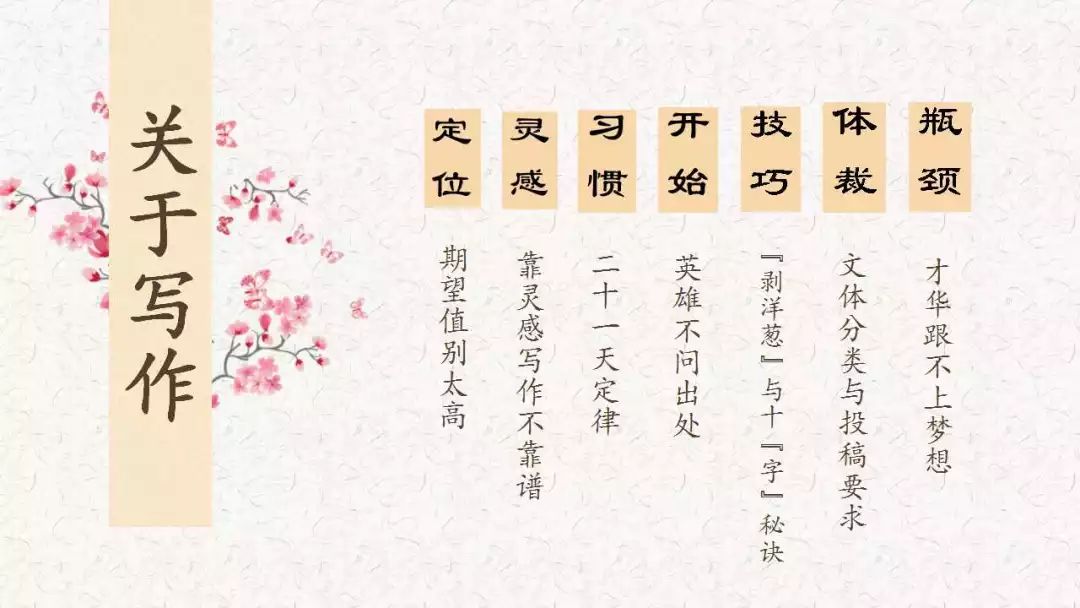 关于写作
定位
期望值别太高
灵感
靠灵感写作不靠谱
习惯
二十一天定律
开始
英雄不问出处
技巧
『剥洋葱』与十『字』秘诀
体裁
文体分类与投稿要求
瓶颈
才华跟不上梦想